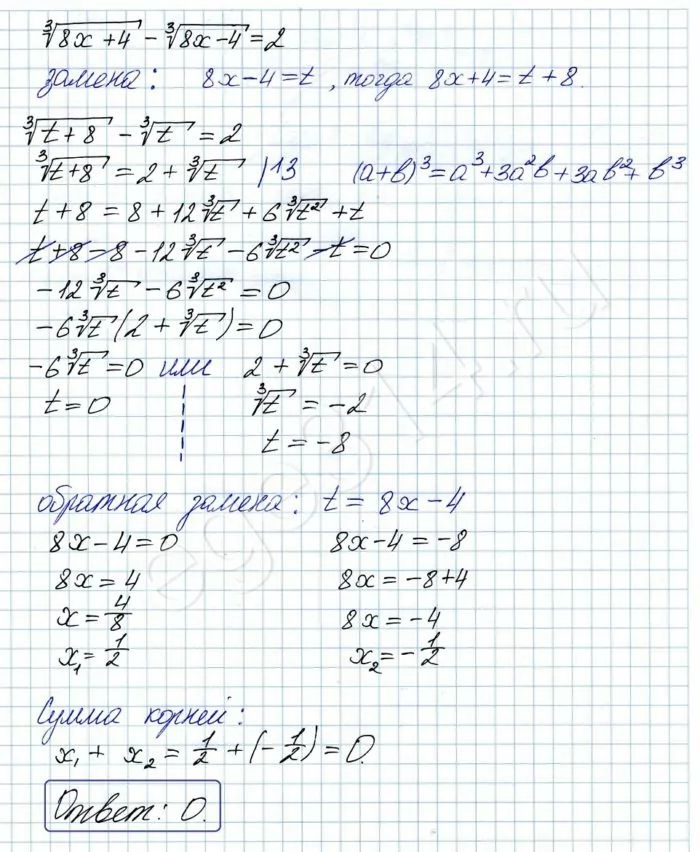 ∛(8x+4) − ∛(8x−4) = 2
замена: 8x−4=t, тогда 8x+4=t+8.
∛(t+8) − ∛t = 2
∛(t+8) = 2 + ∛t |↑3 (a+b)³=a³+3a²b+3ab²+b³
t+8 = 8+12∛t+6∛t²+t
t+8−8−12∛t−6∛t²−t=0
−12∛t − 6∛t² = 0
−6∛t(2+∛t)=0
−6∛t=0 или 2+∛t=0
t=0 ∛t = −2
t = −8
обратная замена: t = 8x−4
8x−4=0 8x−4=−8
8x=4 8x=−8+4
x=4/8 8x=−4
x₁=1/2 x₂=−1/2
Сумма корней:
x₁ + x₂ = 1/2 + (−1/2) = 0.
Ответ: 0.
ege314.ru